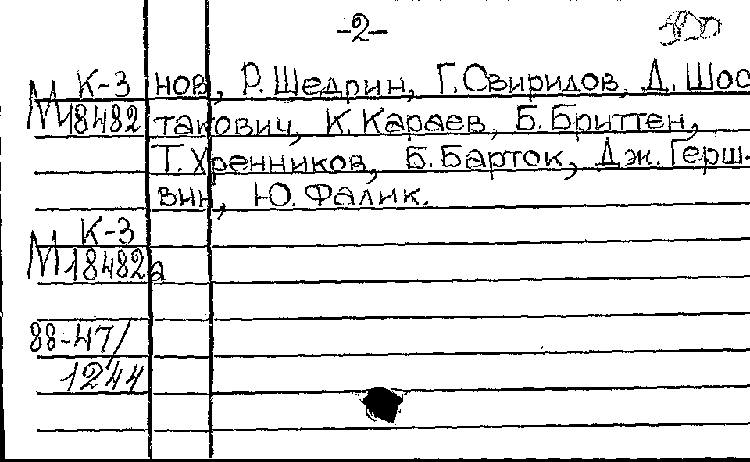 -2-
К-3 нов, Р. Щедрин, Г. Свиридов, Д. Шос
М18482 такович, К. Караев, Б. Бриттен,
Т. Хренников, Б. Барток, Дж. Герш-
вин, Ю. Фалик.
К-3
М18482а
88-47/
1244